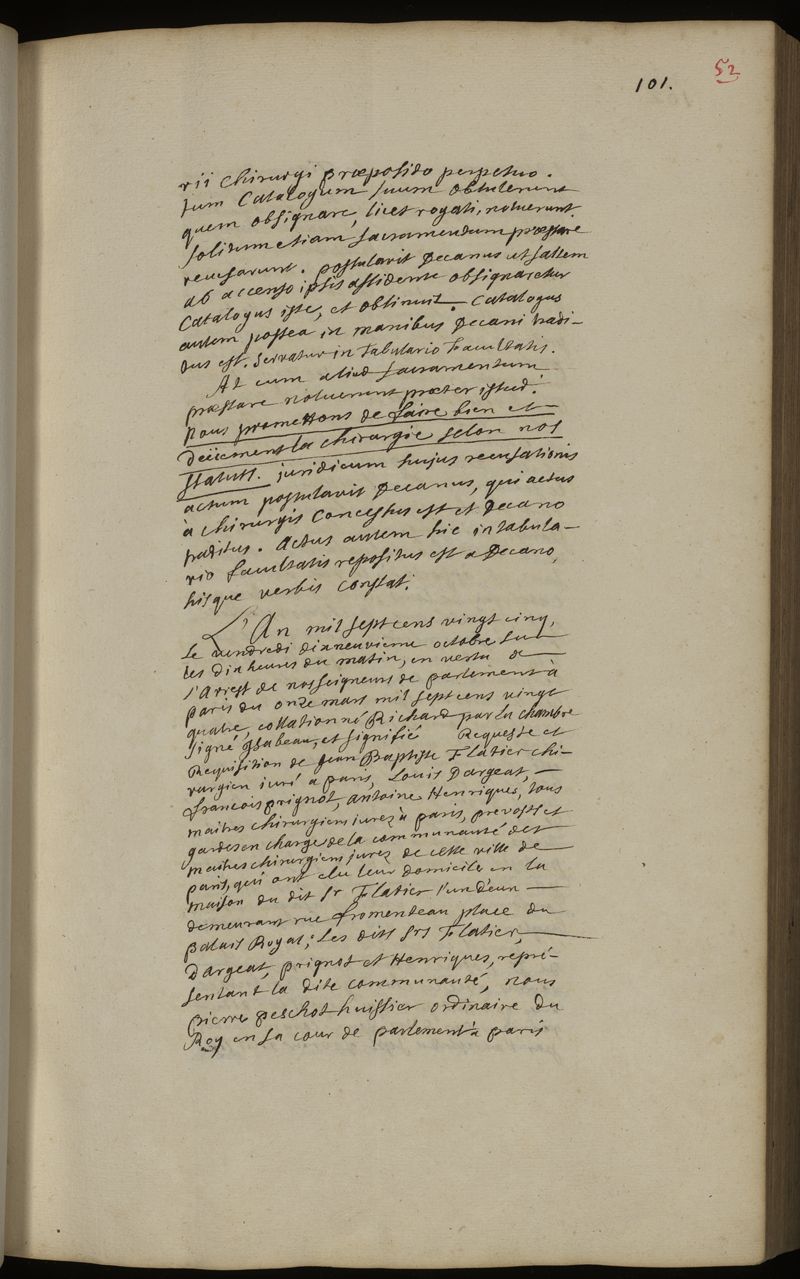 101.
52
rii chirurgi præposito perpetuo.
tum Catalogum suum obtulerunt
quem obsignare, licet rogati, noluerunt.
solitum etiam sacramentum præstare
recusarunt. postulavit Decanus ut saltem
ab accenso ipsis assidente obsignaretur
Catalogus iste, et obtinuit. Catalogus
autem postea in manibus Decani tradi-
tus est. servatur in Tabulario Facultatis.
At cum aliud sacramentum
præstare noluerunt præter istud:
Nous promettons de faire bien et
deüement la chirurgie selon nos
statuts. juridicum hujus recusationis
actum postulavit Decanus, qui actus
à chirurgis Concessus est et Decano
traditus. Actus autem hic in tabula-
rio facultatis repositus est a Decano,
hisque verbis constat.
L'An mil sept cens vingt cinq,
Le vendredi dixneuvieme octobre sur
les dix heures du matin, en vertu de
l'Arrest de nosseigneurs de parlement à
paris du onze mars mil sept cens vingt
quatre, collationné Richard par la chambre
signé Ysabeau, et signifié Requeste et
Requisition de Jean Baptiste Flatier chi-
rurgien juré a paris, Louis Dargeat,
francois prignot, Antoine Henriques, tous
maitres chirurgiens jurez à paris, prevosts et
gardes en charge de la communauté des
maitres chirurgiens jurez de cette ville de
paris, qui ont elu leur domicile en la
maison du dit sr Flatier l'un d'eux
demeurant rue fromenteau place du
palais Royal; Les dits srs Flatier,
Dargeat, prignot et Henriques, repré-
sentant la dite communauté, nous
pierre peschot huissier ordinaire du
Roy en sa cour de parlement à paris